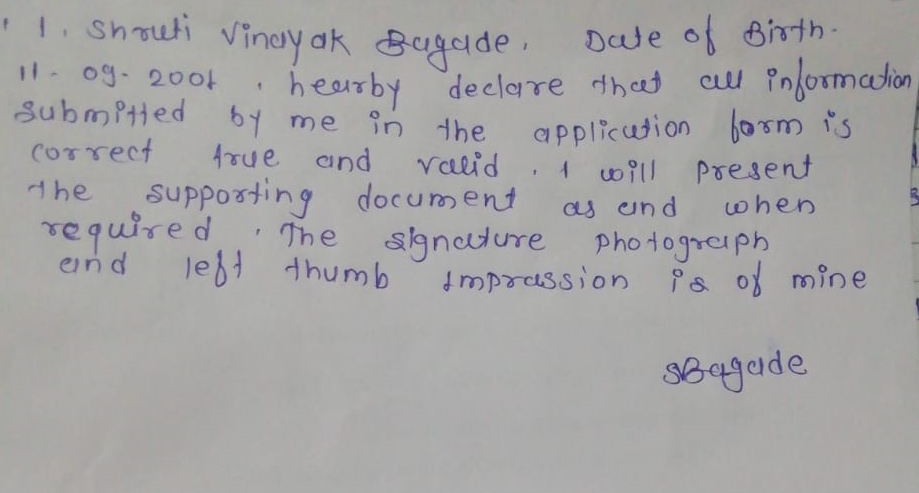 I, Shruti Vinayak Bagade, Date of Birth.
11-09-2001, hearby declare that all information
submitted by me in the application form is
correct true and valid. I will present
the supporting document as and when
required. The signature photograph
and left thumb imprassion is of mine
SBagade